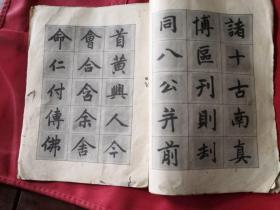 諸十古南真
博區刊則刦
同八公并前
首黄興人今
會合含余舍
命仁付傳佛